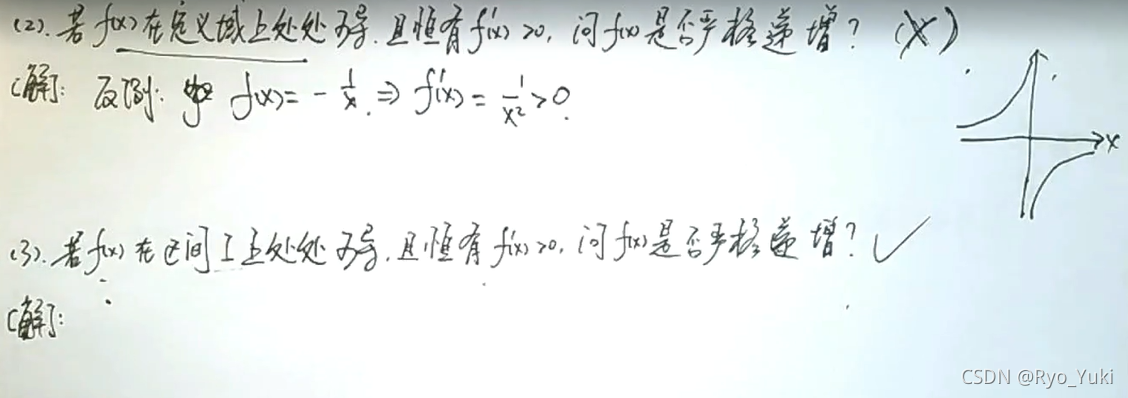 (2). 若f(x)在定义域上处处可导, 且恒有f'(x)>0, 问f(x)是否严格递增? (×)
[解]: 反例: 如 f(x)= -1/x. ⇒ f'(x)= 1/x²>0.
x
(3). 若f(x)在区间I上处处可导, 且恒有f'(x)>0, 问f(x)是否严格递增? ✓
[解]:
CSDN @Ryo_Yuki